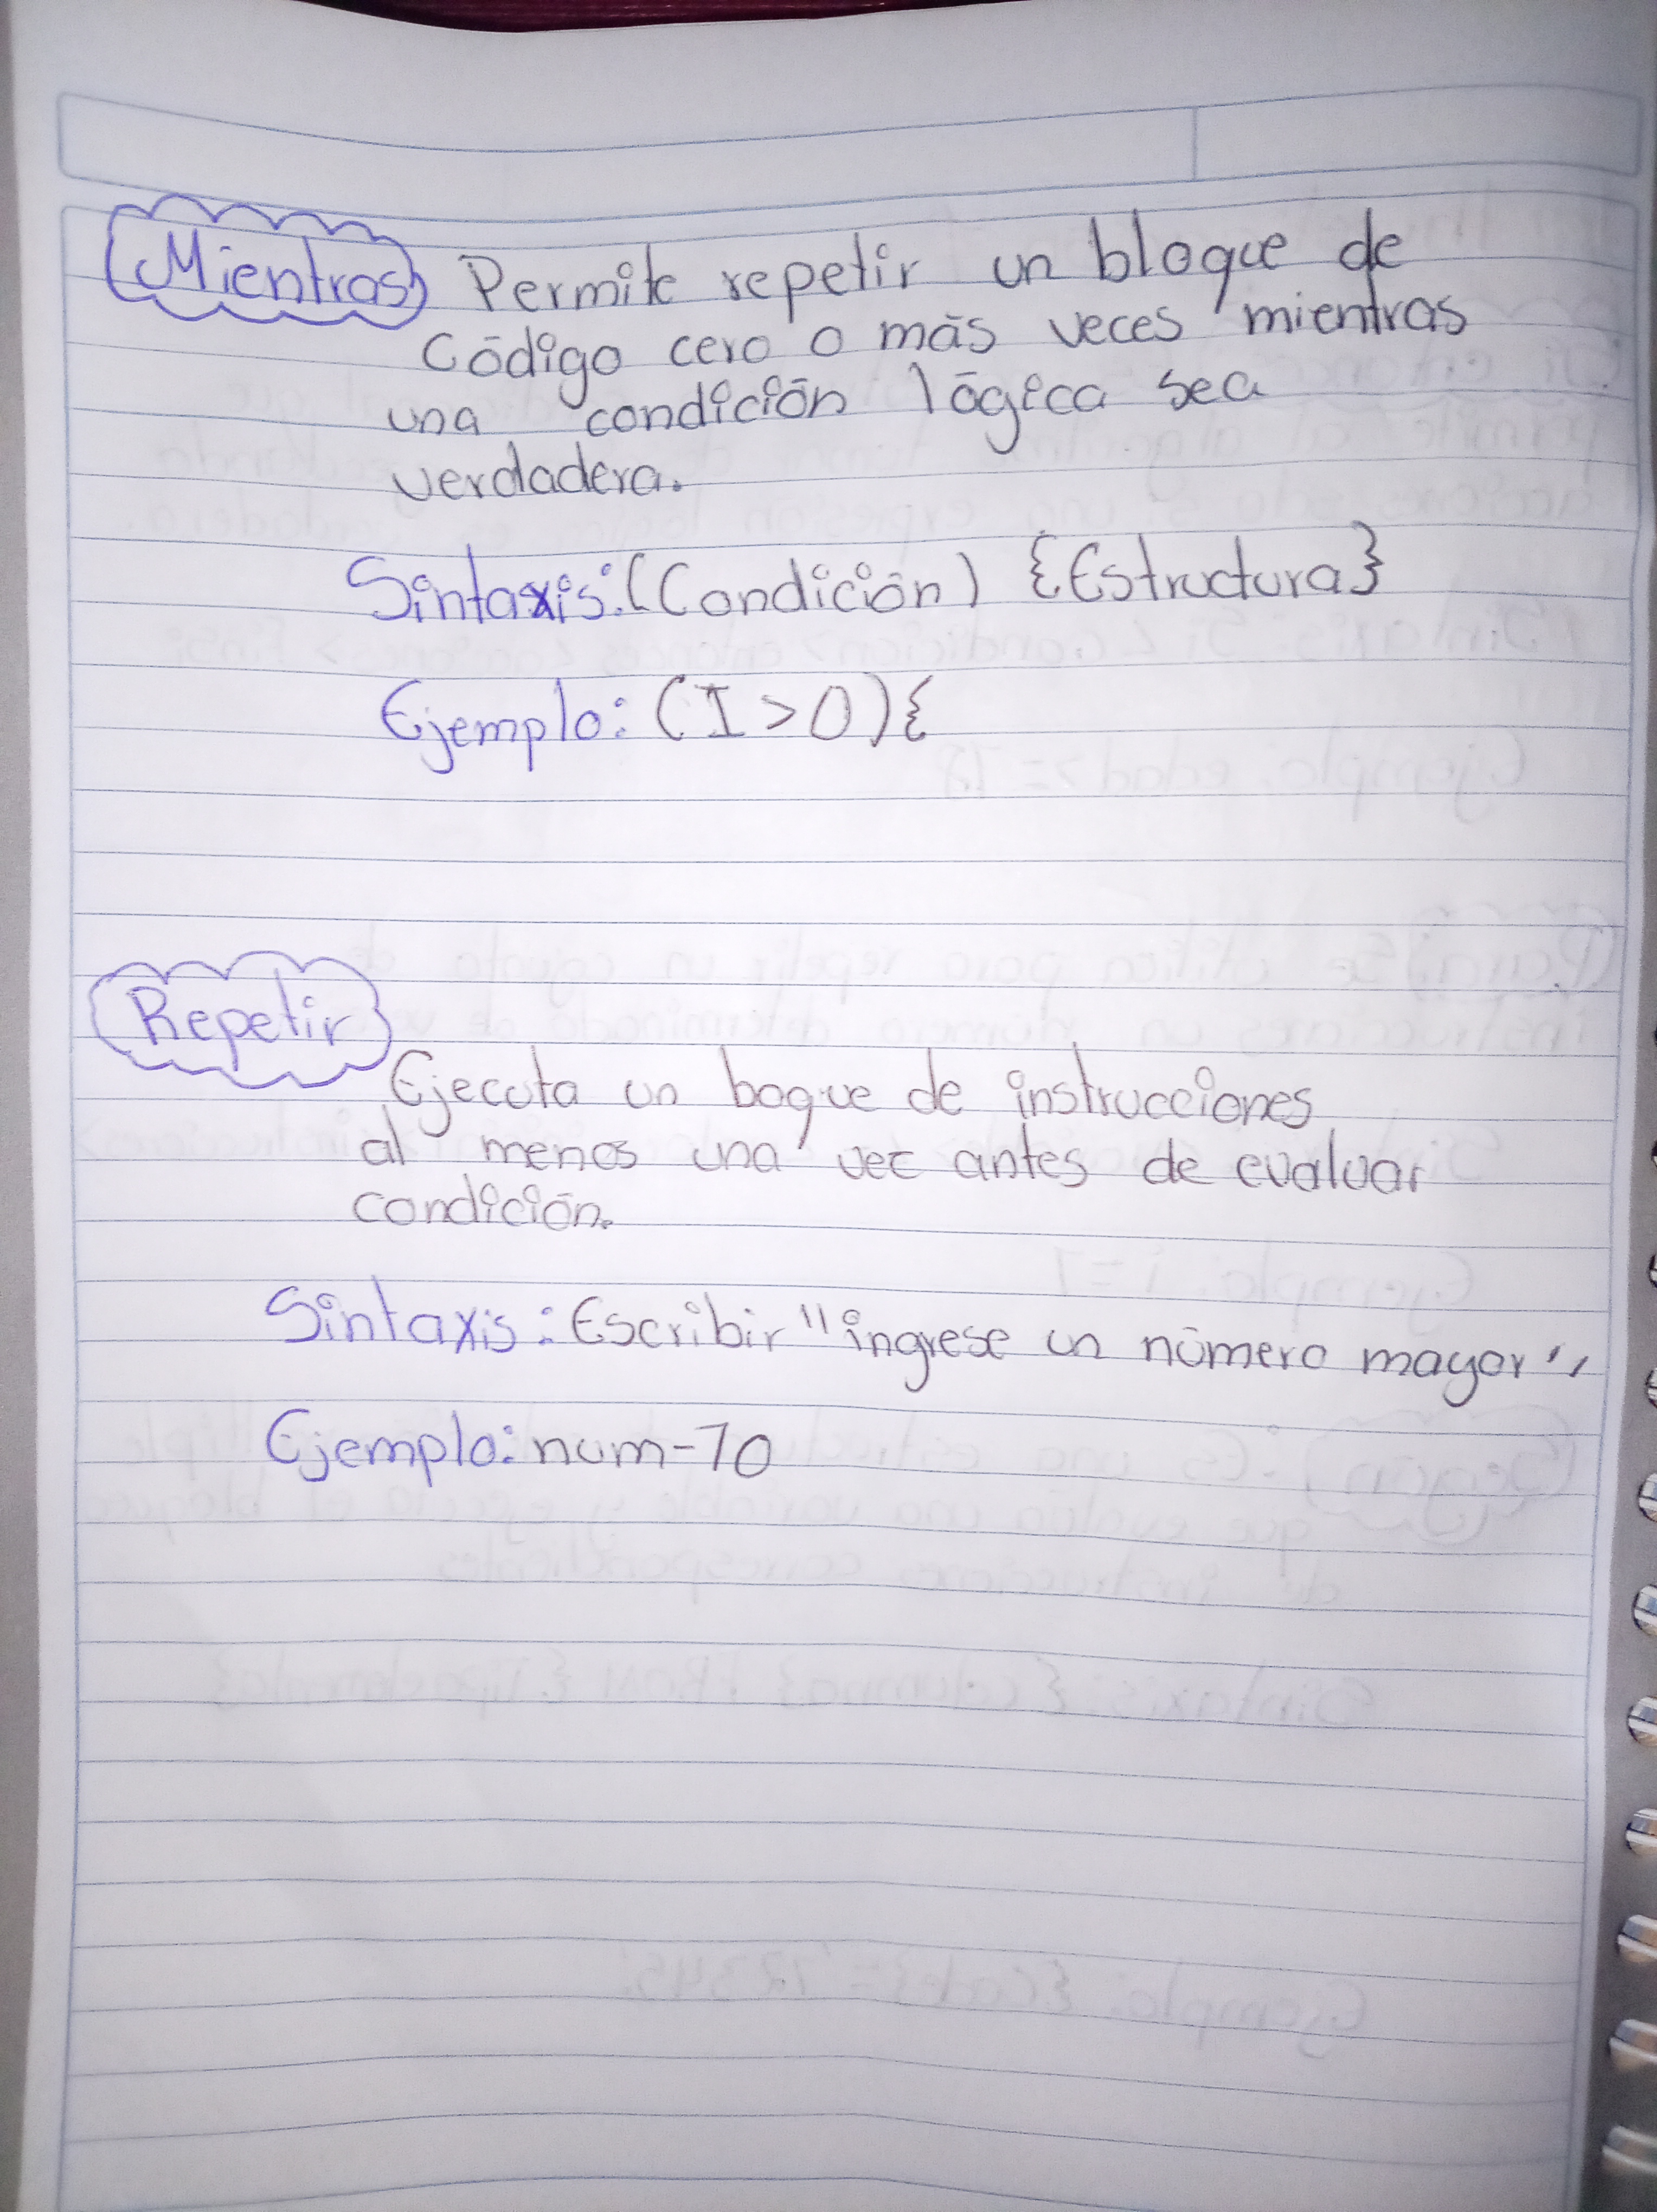 Mientras Permite repetir un bloque de
Código cero o más veces mientras
una condición lógica sea
verdadera.
Sintaxis: (Condición) {Estructura}
Ejemplo: (I > 0) {
Repetir
Ejecuta un boque de instrucciones
al menos una vez antes de evaluar
condición.
Sintaxis: Escribir "ingrese un número mayor",
Ejemplo: num-10